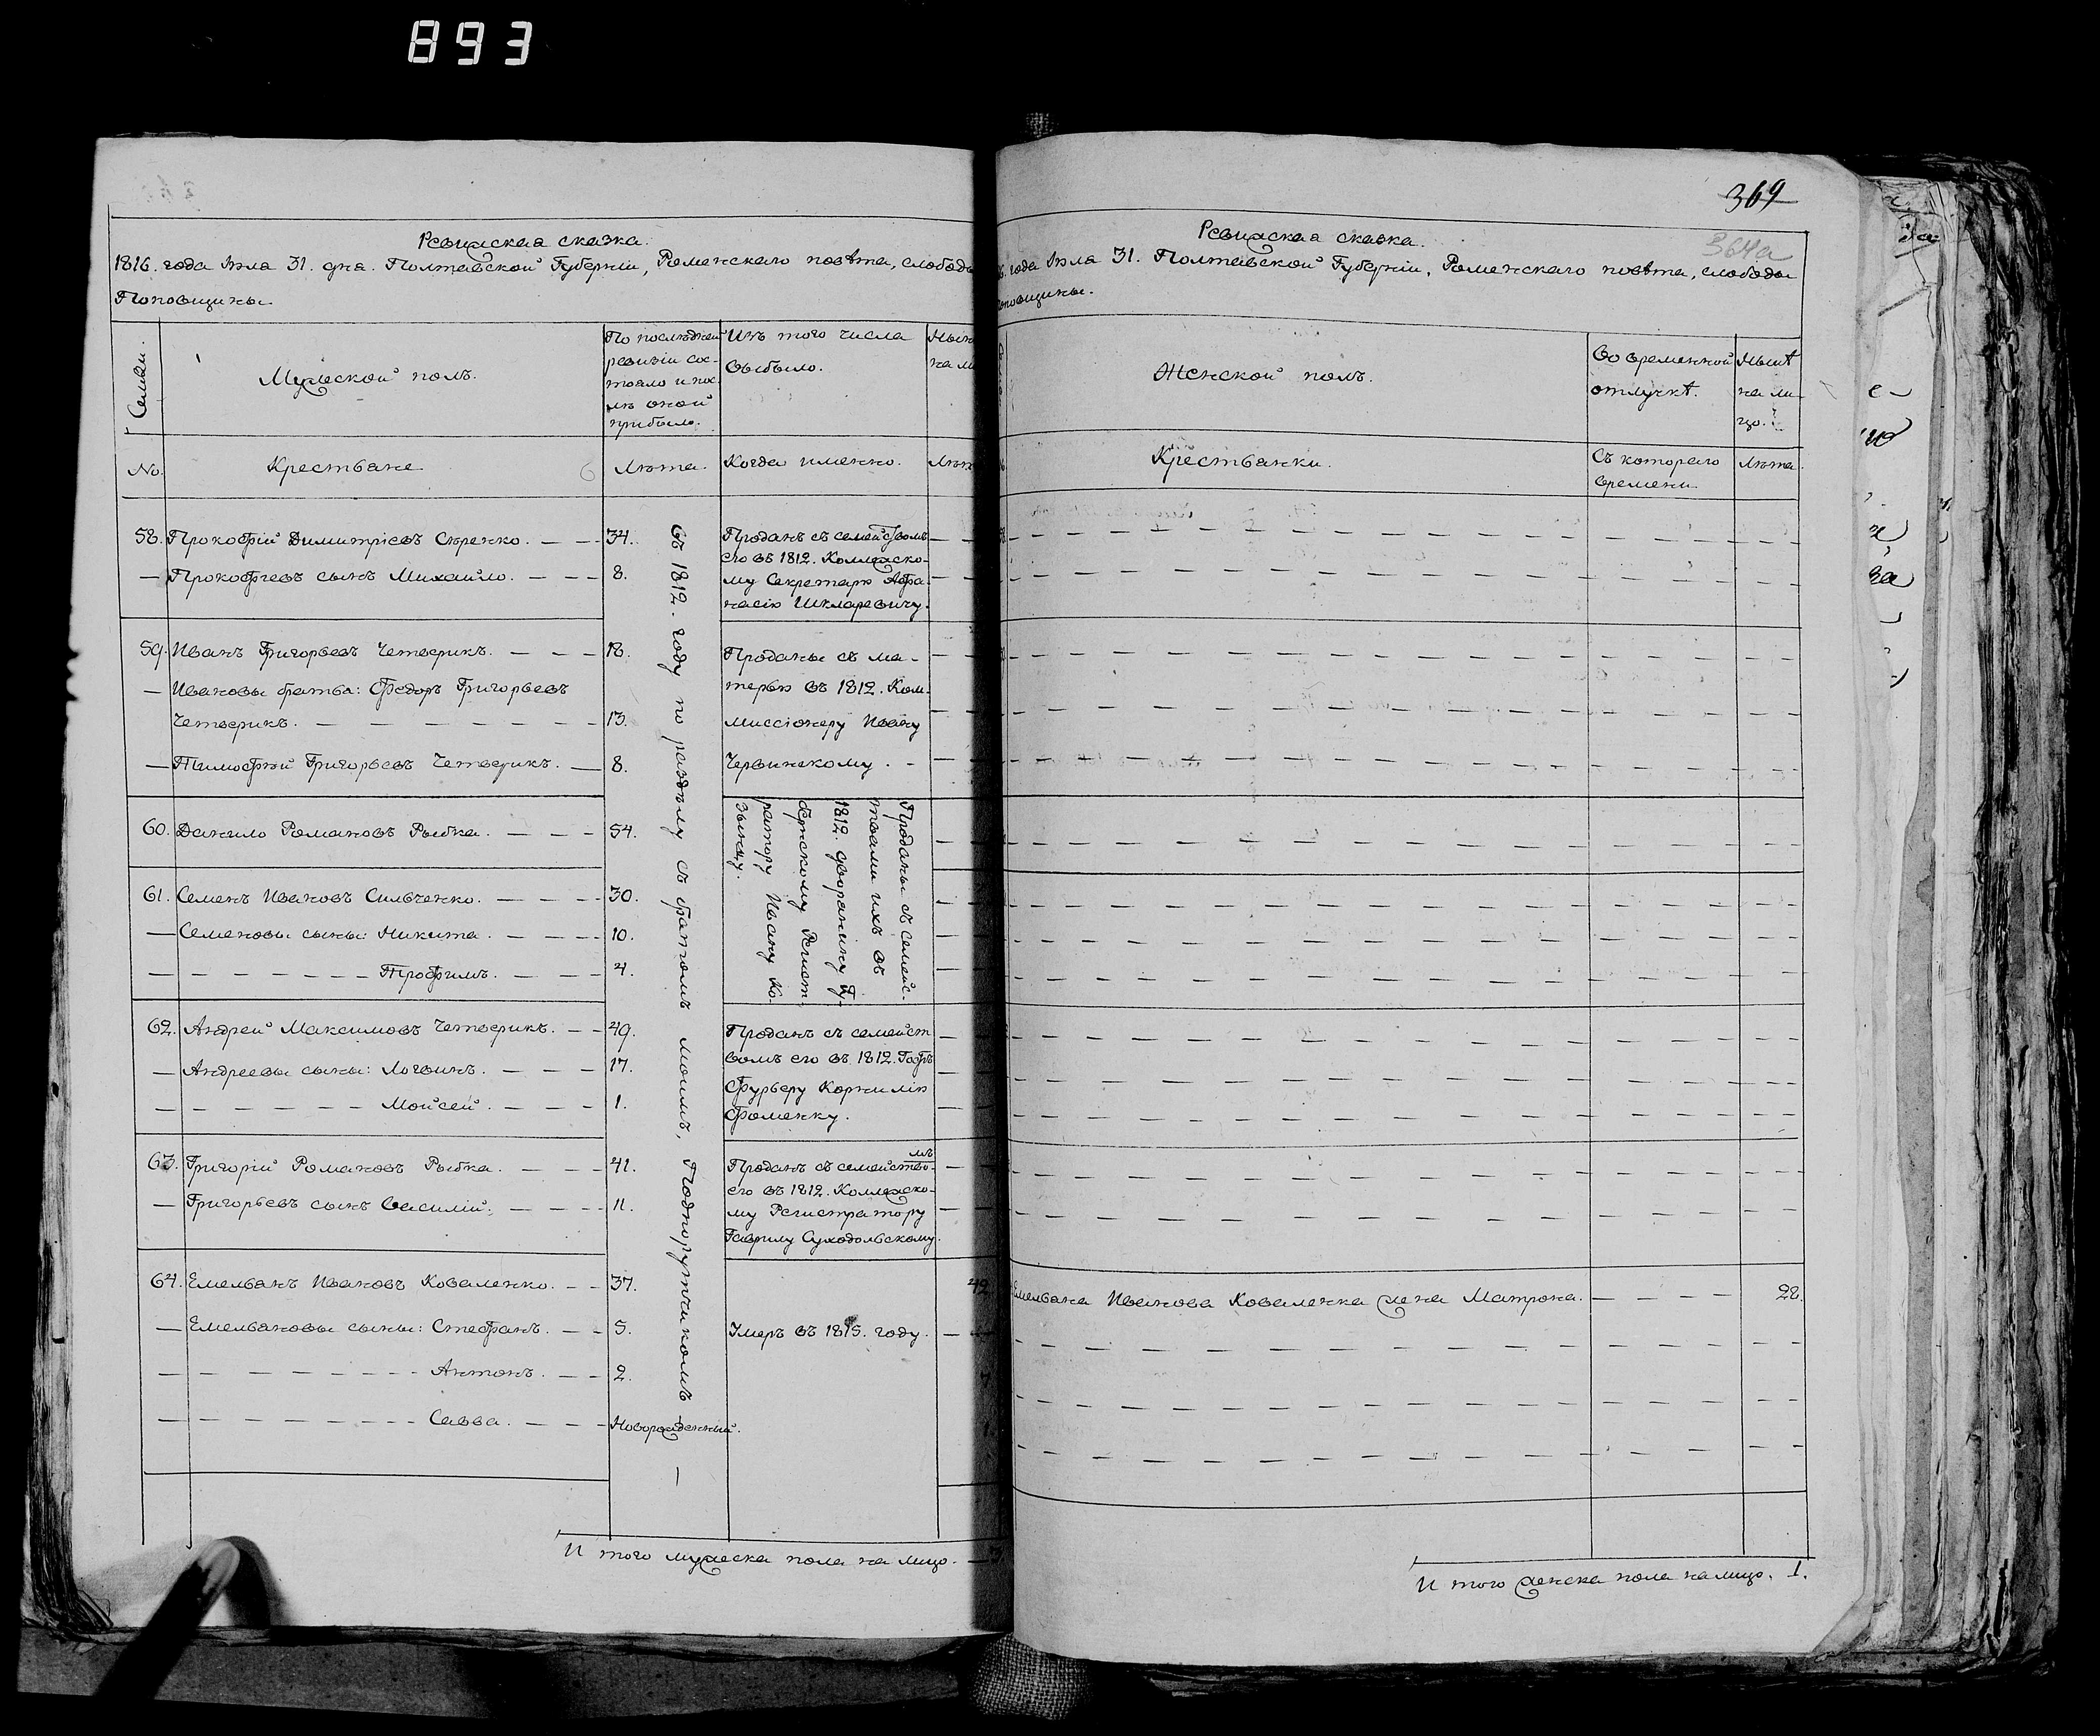 893
Ревизская сказка.
1816. года Іюла 31. дня. Полтавской Губерніи, Роменскаго повѣта, слободы
Поповщины
Семьи.
Мужеской полъ.
По послѣдней
ревизіи сос-
тояло и пос-
лѣ оной
прибыло.
Изъ того числа
выбыло.
Нын
на ли
No.
Крестьяне
Лѣта.
Когда именно.
Лѣт
58. Прокофій Димитріевъ Сѣренко. 34.
Прокофіевъ сынъ Михайло. 8.
Проданъ съ семействомъ
его въ 1812. Коллежско-
му Секретарю Афа-
насію Шкларевичу.
59. Иванъ Григорьевъ Четверикъ. 18.
Ивановы братья: Федоръ Григорьевъ
Четверикъ. 13.
Тимофѣй Григорьевъ Четверикъ. 8.
Проданы съ ма-
терью въ 1812. Ком-
миссіонеру Ивану
Червинскому.
60. Данило Романовъ Рыбка. 54.
61. Семенъ Ивановъ Сильченко. 30.
Семеновы сыны: Никита. 10.
Трофимъ. 4.
Проданы съ семейс-
твами ихъ въ
1812. дворянину Гу-
бернскому Регист-
ратору Ивану Ко-
зинцу.
62. Андрей Максимовъ Четверикъ. 49.
Андреевы сыны: Логвинъ. 17.
Мойсей. 1.
Проданъ съ семейст
вомъ его въ 1812. Гофъ
Фурьеру Корнилію
Фоменку.
63. Григорій Романовъ Рыбка. 41.
Григорьевъ сынъ Василій. 11.
Проданъ съ семействомъ
его въ 1812. Коллежско-
му Регистратору
Гаврилу Суходольскому.
64. Емельянъ Ивановъ Коваленко. 37. 42
Емельяновы сыны: Стефанъ. 5. Умеръ въ 1815. году.
Антонъ. 2. 7
Савва. Новорожденный. 1
Въ 1812. году по раздѣлу съ братомъ моимъ, Подпорутчикомъ —
И того мужеска пола на лицо.
369
364а
Ревизская сказка.
года Іюла 31. Полтавской Губерніи, Роменскаго повѣта, слободы
Поповщины.
Женской полъ.
Во временной
отлучкѣ.
Нынѣ
на ли-
цо.
Крестьянки.
Съ котораго
времени
Лѣта.
Емельяна Иванова Коваленка жена Матрона. 28.
И того женска пола на лицо. 1.